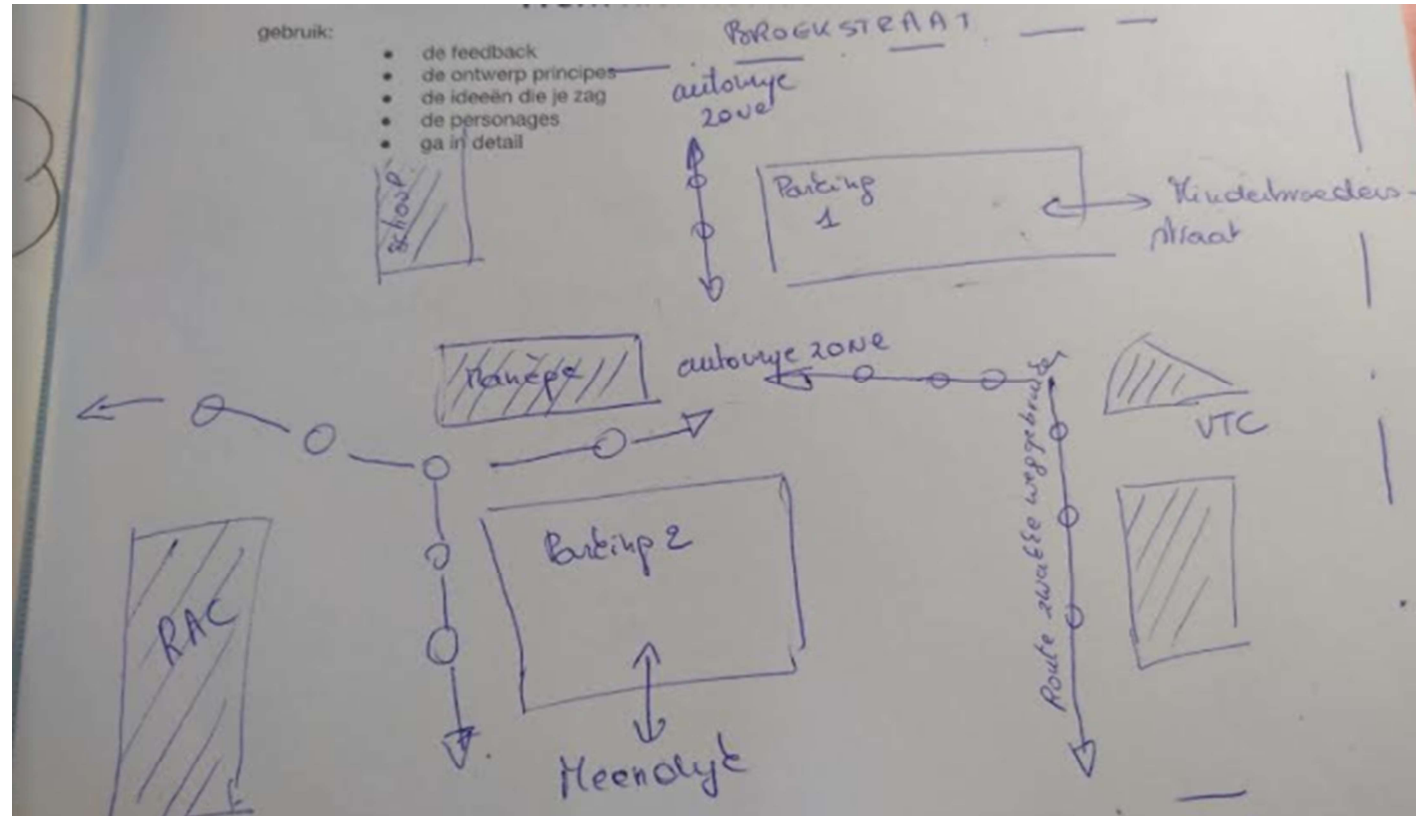 gebruik:
• de feedback
• de ontwerp principes
• de ideeën die je zag
• de personages
• ga in detail
BROEKSTRAAT
autovrije
zone
Parking
1
Minderbroeders-
straat
Manège
autovrije zone
VTC
Route zwakke weggebruiker
Parking 2
RAC
Meendijk